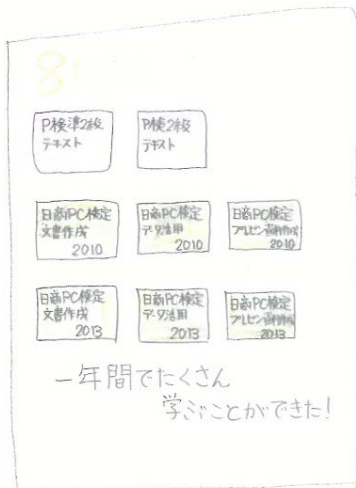 8
P検準2級
テキスト
P検2級
テキスト
日商PC検定
文書作成
2010
日商PC検定
データ活用
2010
日商PC検定
プレゼン資料作成
2010
日商PC検定
文書作成
2013
日商PC検定
データ活用
2013
日商PC検定
プレゼン資料作成
2013
一年間でたくさん
学ぶことができた!